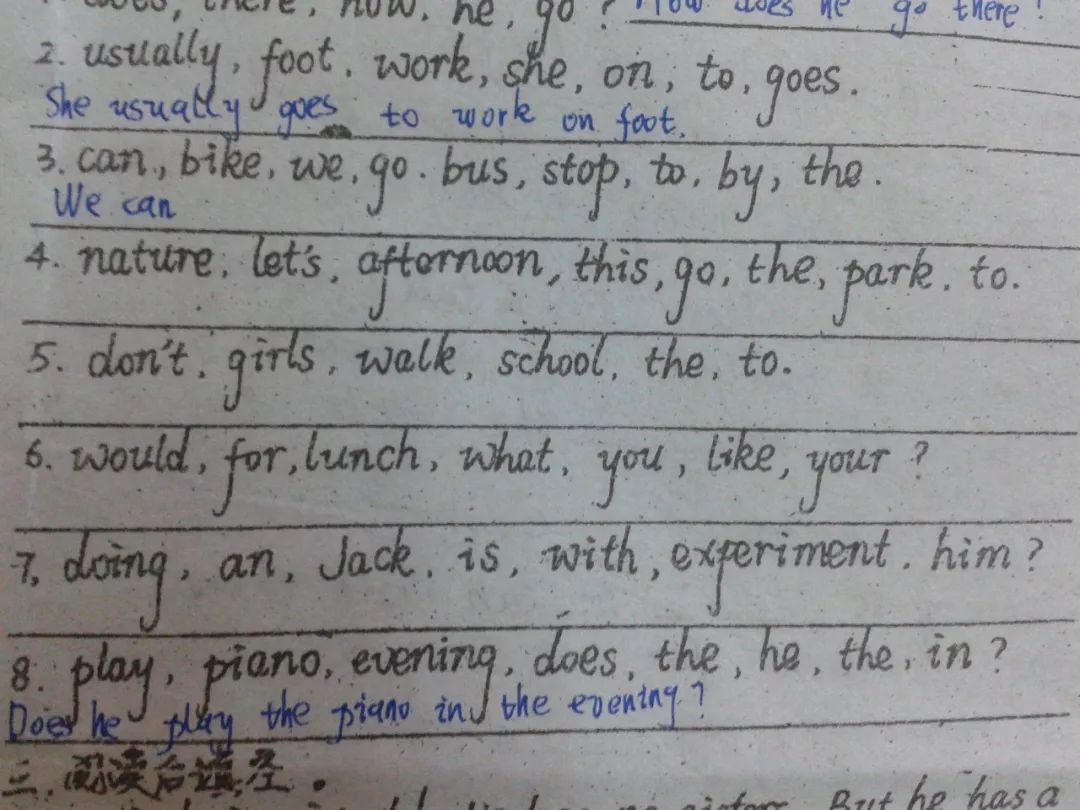 does, there, how, he, go ? How does he go there?
2. usually, foot, work, she, on, to, goes.
She usually goes to work on foot.
3. can, bike, we, go. bus, stop, to, by, the.
We can
4. nature, let's, afternoon, this, go, the, park, to.
5. don't, girls, walk, school, the, to.
6. would, for, lunch, what, you, like, your ?
7. doing, an, Jack, is, with, experiment. him ?
8. play, piano, evening, does, the, he, the, in ?
Does he play the piano in the evening ?
三. 阅读后填空.
But he has a